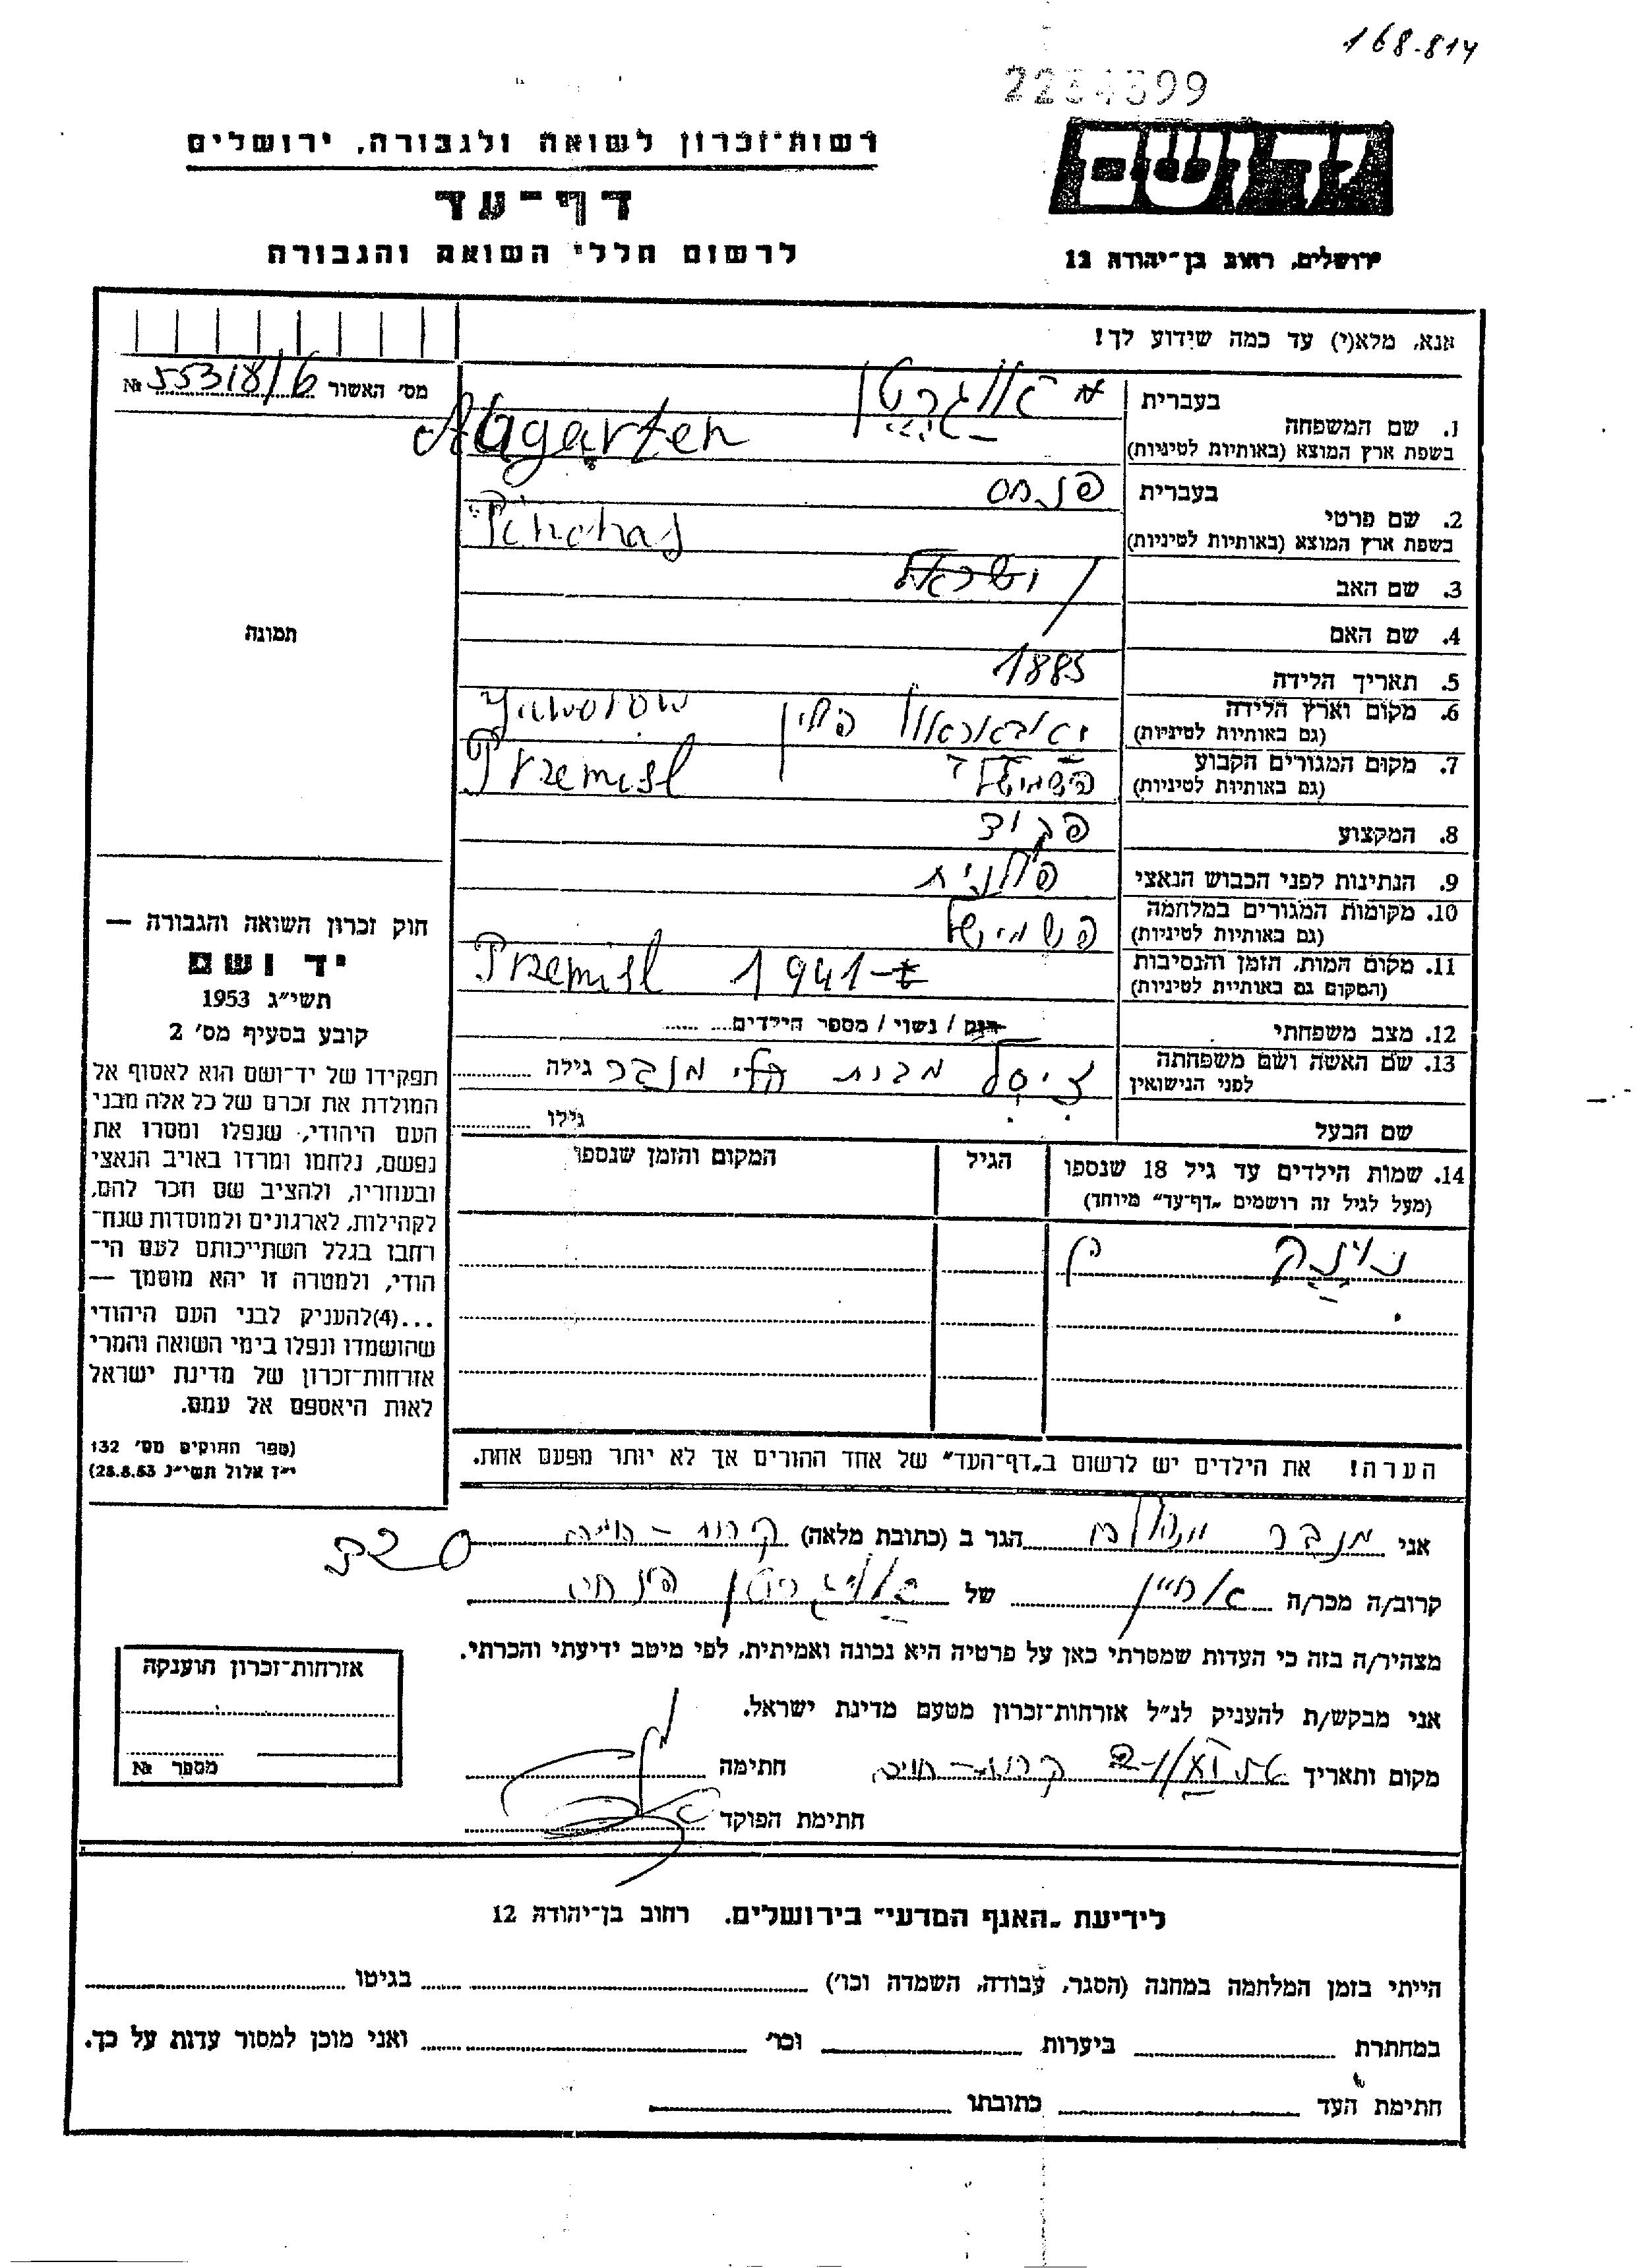 168.814
רשות־זכרון לשואה ולגבורה, ירושלים
יד ושם
דף־עד
לרשום חללי השואה והגבורה
ירושלים, רחוב בן־יהודה 12
אנא, מלא(י) עד כמה שידוע לך!
מס׳ האשור 55318/6 №
1. שם המשפחה
בעברית
בשפת ארץ המוצא (באותיות לטיניות) Augarten
2. שם פרטי
בעברית פנחס
בשפת ארץ המוצא (באותיות לטיניות) Pinchas
3. שם האב ישראל
4. שם האם
5. תאריך הלידה 1885
6. מקום וארץ הלידה פולין Yaworow
(גם באותיות לטיניות)
7. מקום המגורים הקבוע Przemisl
(גם באותיות לטיניות)
8. המקצוע
9. הנתינות לפני הכבוש הנאצי פולנית
10. מקומות המגורים במלחמה פשמישל
(גם באותיות לטיניות)
11. מקום המות, הזמן והנסיבות 1941 Przemisl
(המקום גם באותיות לטיניות)
12. מצב משפחתי רווק / נשוי / מספר הילדים
13. שם האשה ושם משפחתה מבית מנבר גילה
לפני הנישואין
שם הבעל גילו
14. שמות הילדים עד גיל 18 שנספו הגיל המקום והזמן שנספו
(מעל לגיל זה רושמים „דף־עד” מיוחד)
בן
הערה! את הילדים יש לרשום ב„דף־העד” של אחד ההורים אך לא יותר מפעם אחת.
תמונה
חוק זכרון השואה והגבורה —
יד ושם
תשי״ג 1953
קובע בסעיף מס׳ 2
תפקידו של יד־ושם הוא לאסוף אל
המולדת את זכרם של כל אלה מבני
העם היהודי, שנפלו ומסרו את
נפשם, נלחמו ומרדו באויב הנאצי
ובעוזריו, ולהציב שם וזכר להם,
לקהילות, לארגונים ולמוסדות שנח־
רחבו בגלל השתייכותם לעם הי־
הודי, ולמטרה זו יהא מוסמך —
...(4)להעניק לבני העם היהודי
שהושמדו ונפלו בימי השואה והמרי
אזרחות־זכרון של מדינת ישראל
לאות היאספם אל עמם.
(ספר החוקים מס׳ 132
י״ז אלול תשי״ג 28.8.53)
אני מנבר הגר ב (כתובת מלאה)
קרוב/ה מכר/ה אחיין של אוגרטן פנחס
מצהיר/ה בזה כי העדות שמסרתי כאן על פרטיה היא נכונה ואמיתית, לפי מיטב ידיעתי והכרתי.
אני מבקש/ת להעניק לנ״ל אזרחות־זכרון מטעם מדינת ישראל.
מקום ותאריך חתימה
חתימת הפוקד
אזרחות־זכרון הוענקה
מספר №
לידיעת „האגף המדעי” בירושלים. רחוב בן־יהודה 12
הייתי בזמן המלחמה במחנה (הסגר, עבודה, השמדה וכו׳) בגיטו
במחתרת ביערות וכו׳ ואני מוכן למסור עדות על כך.
חתימת העד כתובתו